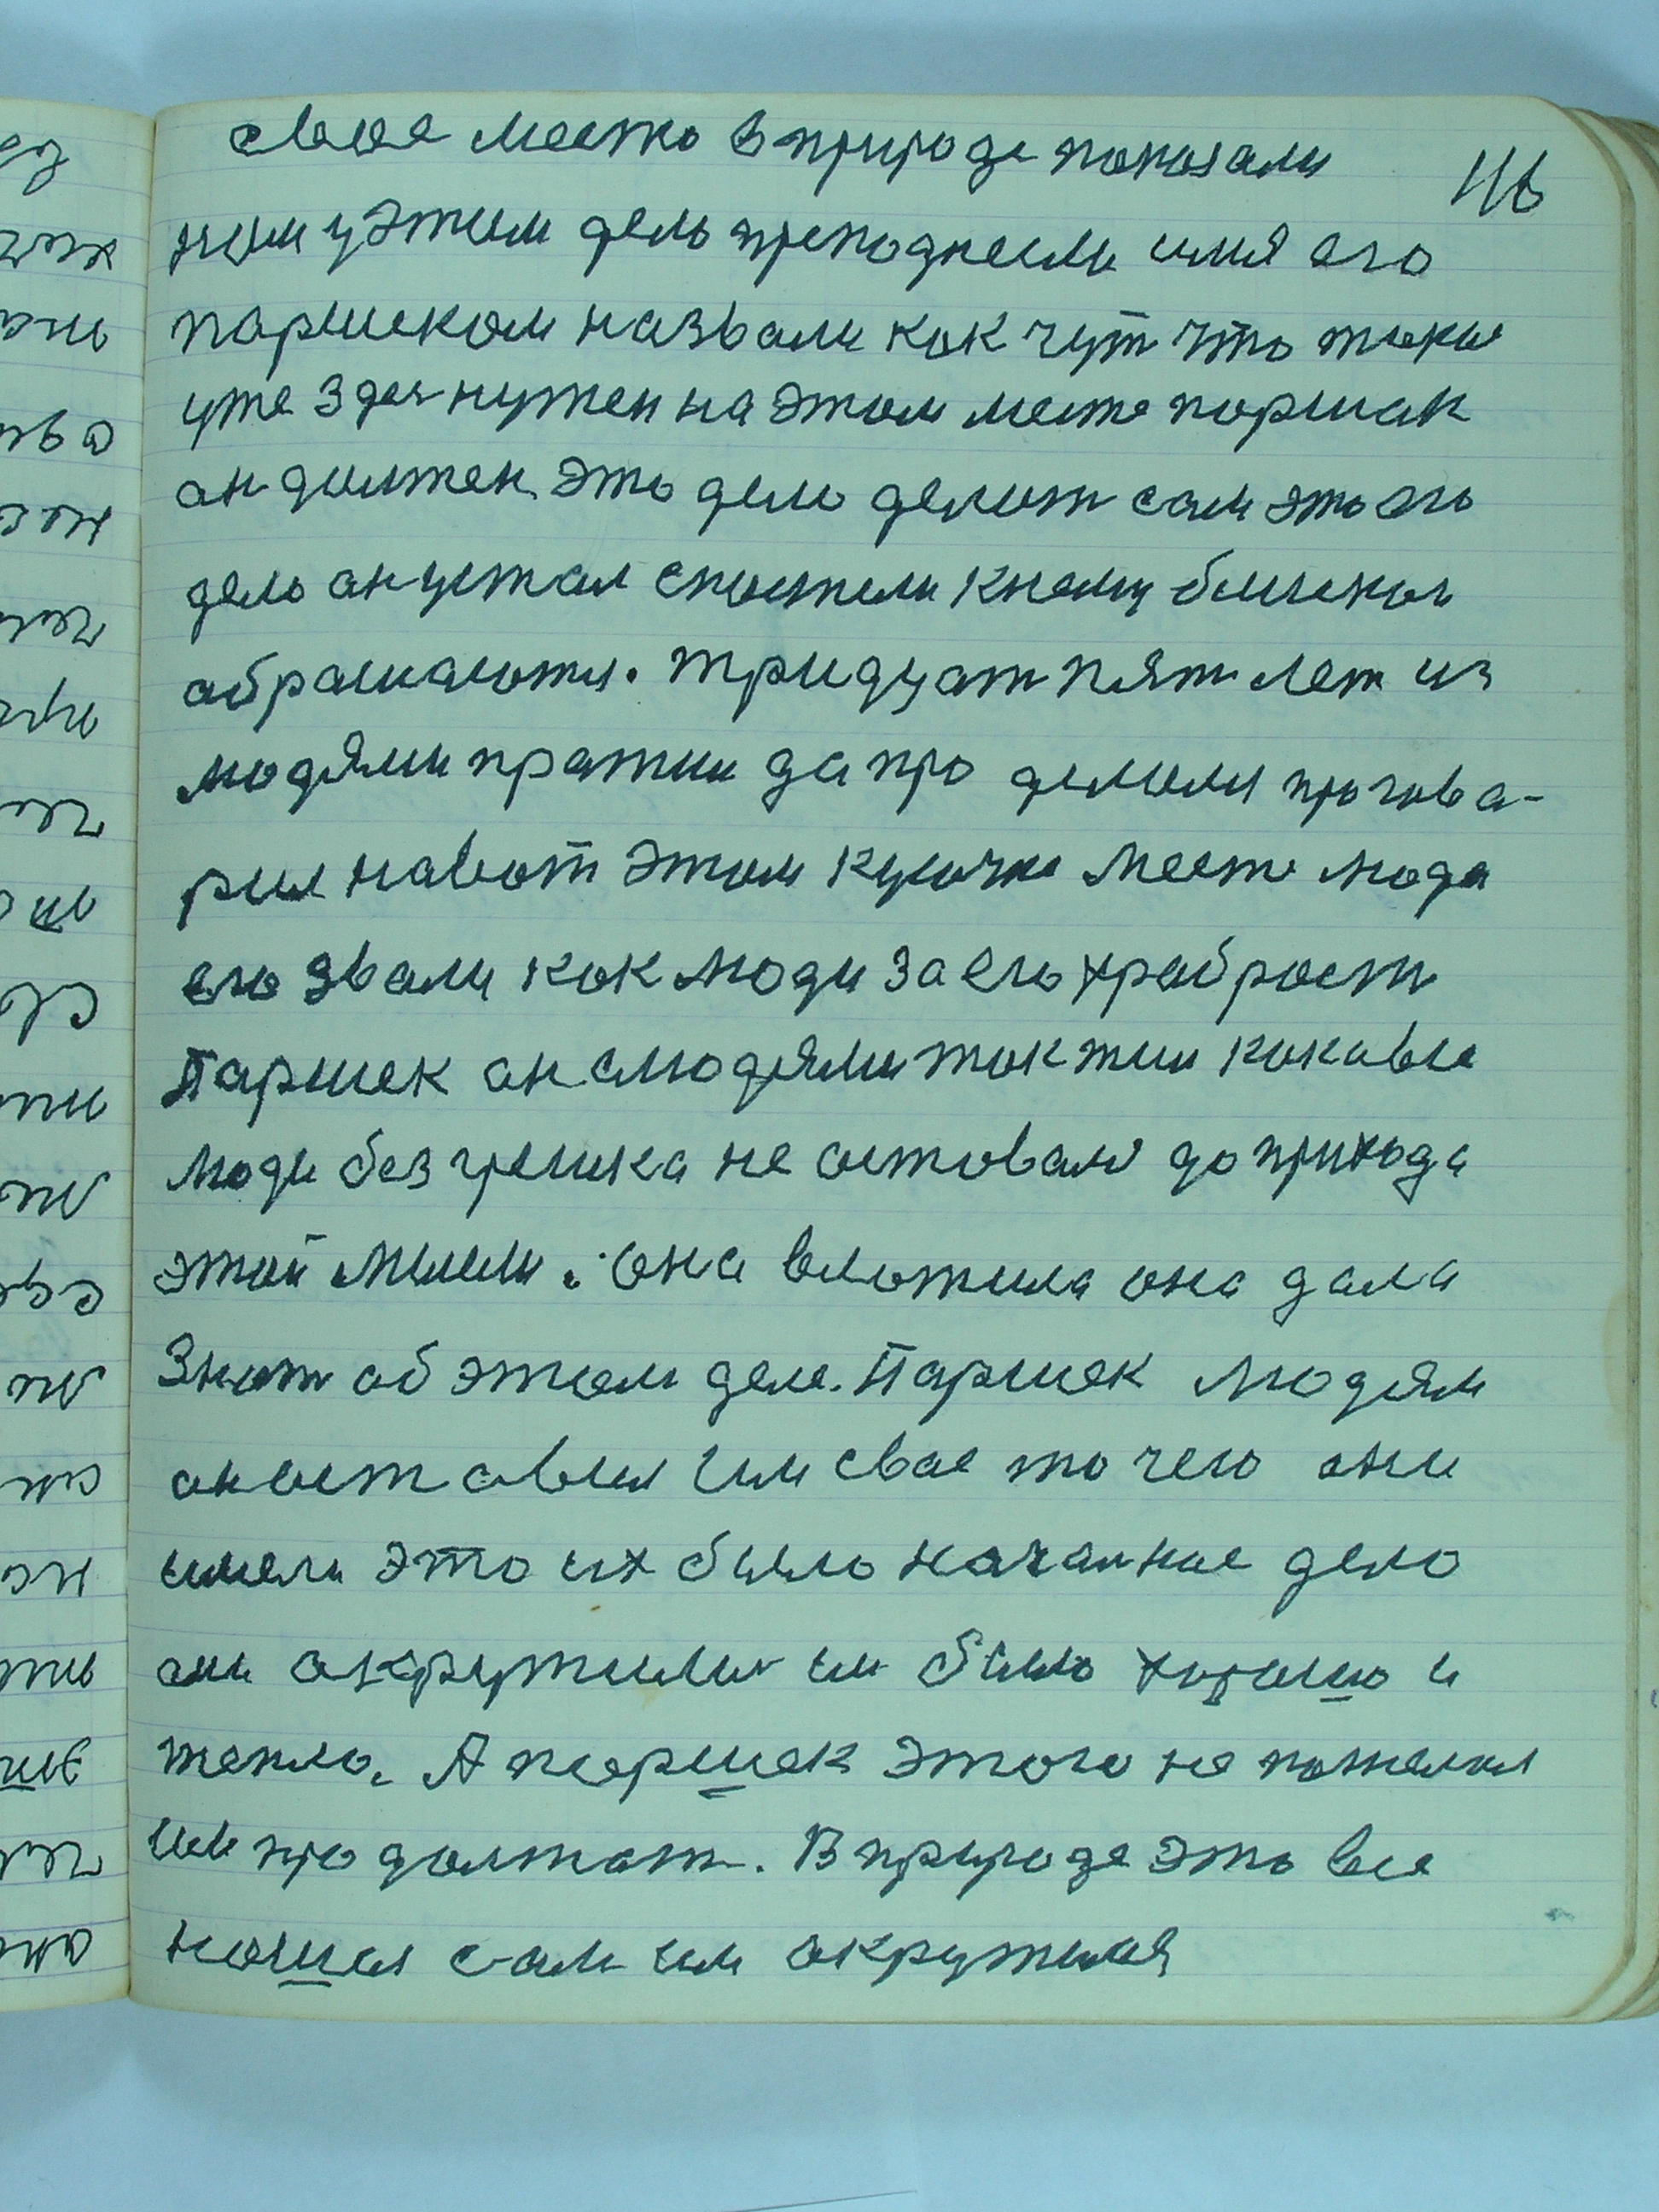 свое место в природе показали
116
нам у этим дель преподнесли имя его
паршеком назвали как чут что токи
уже здес нужен на этом месте паршек
он должен это дело делит сам это его
дело он устал спостели к нему близкои
обрашаются. тридцат пят лет из
людями пратии да про делили прогова-
рил на вот этом кусочке место люди
его звали как люди за его храброст
Паршек он с людями так жил как а все
люди без грешка не оставали до прихода
этой мысли. она вложила она дала
знат об этом деле. Паршек людям
он оставил им свае то чего они
имели это их было началное дело
они окружили им было хорошо и
тепло. А паршек этого не пожелал
им продолжат. В природе это все
нашел сам им окружился